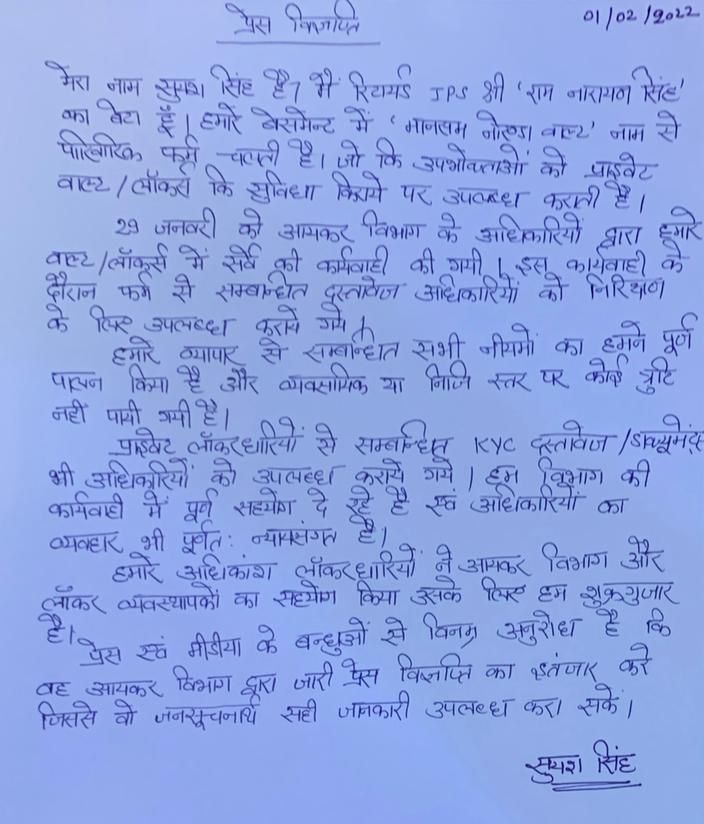 प्रेस विज्ञप्ति
01/02/2022
मेरा नाम सुयश सिंह है। मैं रिटायर्ड IPS श्री 'राम नारायण सिंह'
का बेटा हूँ। हमारे बेसमेन्ट में 'मानसम नोएडा वाल्ट' नाम से
पारिवारिक फर्म चलती है। जो कि उपभोक्ताओं को प्राइवेट
वाल्ट/लॉकर्स कि सुविधा किराये पर उपलब्ध कराती है।
29 जनवरी को आयकर विभाग के अधिकारियों द्वारा हमारे
वाल्ट/लॉकर्स में सर्वे की कार्यवाही की गयी। इस कार्यवाही के
दौरान फर्म से सम्बन्धित दस्तावेज अधिकारियों को निरिक्षण
के लिए उपलब्ध कराये गये।
हमारे व्यापार से सम्बन्धित सभी नीयमों का हमने पूर्ण
पालन किया है और व्यवसायिक या निजि स्तर पर कोई त्रुटि
नहीं पायी गयी है।
प्राइवेट लॉकरधारियों से सम्बन्धित KYC दस्तावेज/डाक्यूमेंट्स
भी अधिकारियों को उपलब्ध कराये गये। हम विभाग की
कार्यवाही में पूर्ण सहयोग दे रहे है एवं अधिकारियों का
व्यवहार भी पूर्णत: न्यायसंगत है।
हमारे अधिकांश लॉकरधारियों ने आयकर विभाग और
लॉकर व्यवस्थापकों का सहयोग किया उसके लिए हम शुक्रगुजार
है।
प्रेस एवं मीडीया के बन्धुओं से विनम्र अनुरोध है कि
वह आयकर विभाग द्वारा जारी प्रेस विज्ञप्ति का इंतजार करे
जिससे वो जनसूचनार्थ सही जानकारी उपलब्ध करा सकें।
सुयश सिंह